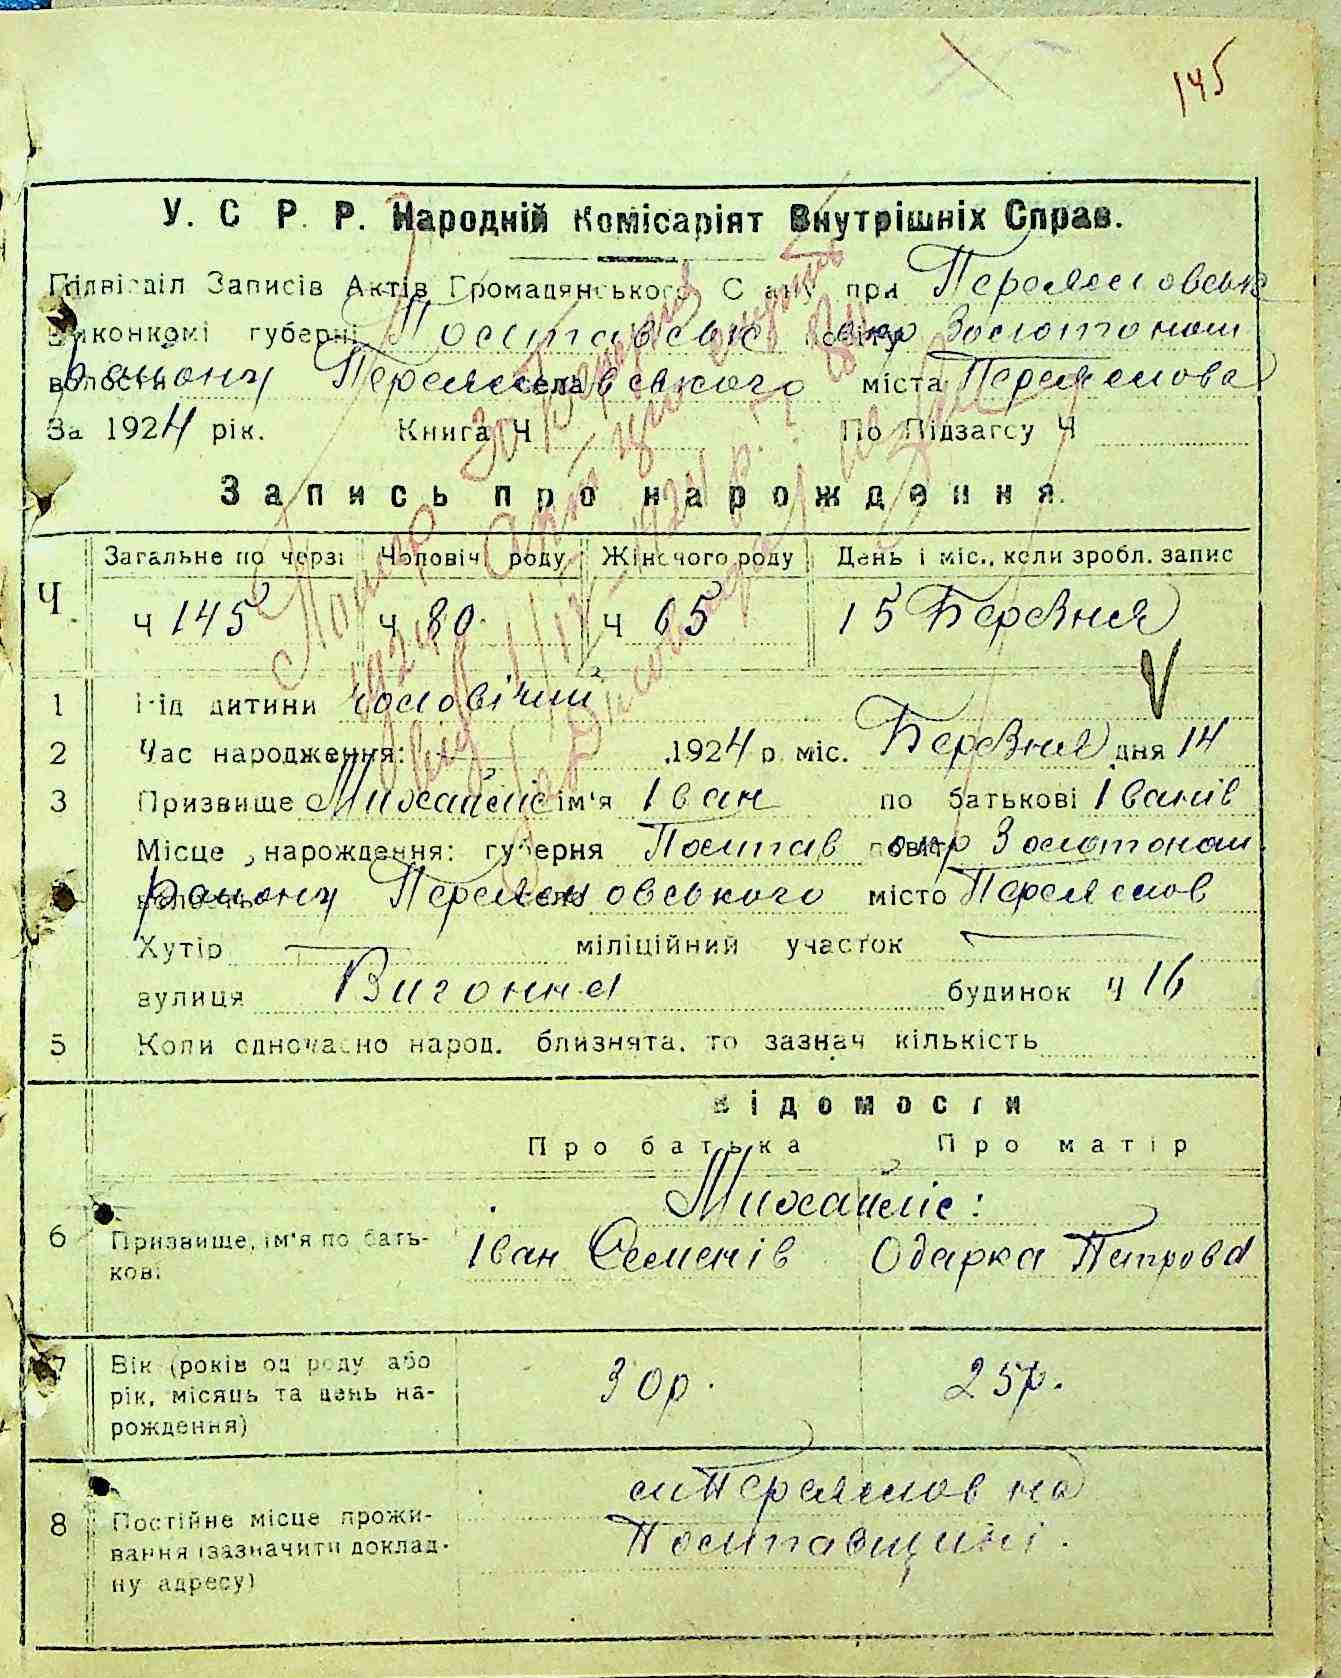 145
У. С. Р. Р. Народній Комісаріят Внутрішніх Справ.
Підвідділ Записів Актів Громадянського Стану при Переяславськ
виконкомі губерні Полтавськ окр Золотонош
району Переяславського міста Переяслова
За 1924 рік. Книга Ч По Підзагсу Ч
Запись про нарождення.
Ч Загальне по черзі Чоловіч роду Жіночого роду День і міс., коли зробл. запис
ч 145 ч 80. ч 65 15 Березня
1 Рід дитини чоловічий
2 Час народження: 1924 р. міс. Березня дня 14
3 Призвище Михайліс ім'я Іван по батькові Іванів
Місце нарождення: губерня Полтав окр Золотонош
району Переяславського місто Переяслов
Хутір міліційний участок
вулиця Вигонна будинок ч 16
5 Коли одночасно народ. близнята, то зазнач кількість
Відомости
Про батька Про матір
Михайліс:
6 Призвище, ім'я по бать- Іван Семенів Одарка Петрова
кові
7 Вік (років од роду або 30р. 25р.
рік, місяць та день на-
рождення)
м Переяслов на
8 Постійне місце прожи- Полтавщині.
вання (зазначити доклад-
ну адресу)